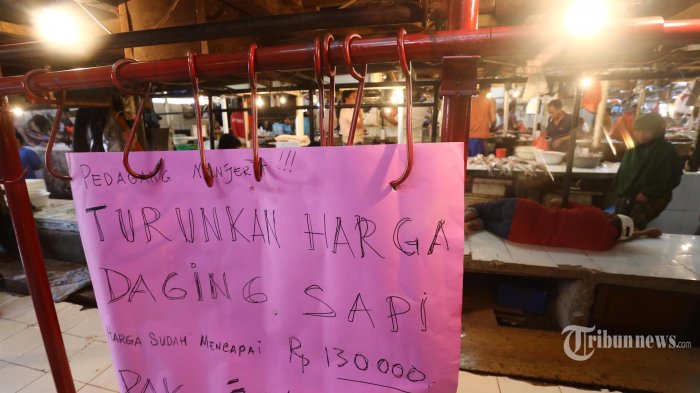 PEDAGANG MENJERIT !!!
TURUNKAN HARGA
DAGING SAPI
HARGA SUDAH MENCAPAI Rp 130000
PAK
Tribunnews.com